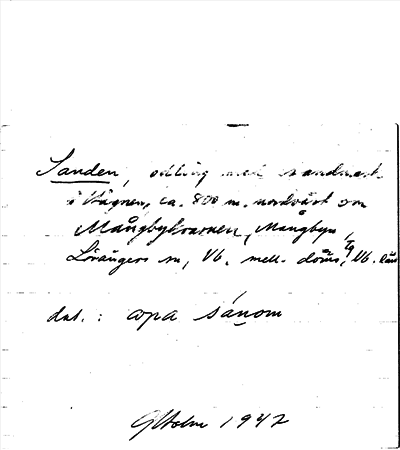 Sanden, odling med sandmark
i Vågnen, ca. 800 m. nordväst om
Mångbykvarnen, Mångbyn,
Lövångers sn, Vb. mell. doms, Vb. län
dat.: opa sánom
1942